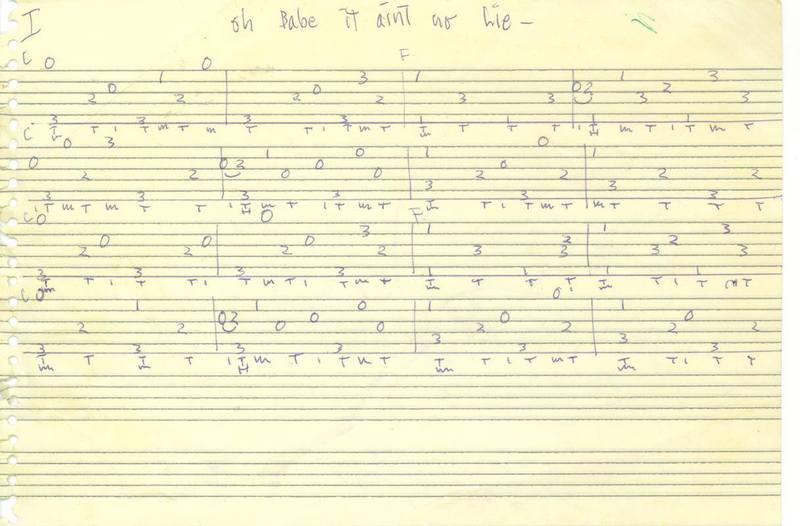 I oh Babe it aint no Lie -
C F
0 0 1 0 2 2 0 2 0 3 2 1 3 3 02 1 3 2 3 3
3 3 3 3 1 1 1
T T i T m T m T T i T m T T T T T i T m T i T m T
C
0 0 3 2 2 0 2 1 0 0 0 0 1 3 2 0 0 2 1 3 2 2
3 3 3 3 3 3
i T m T m T T i T m T i T m T T T i T m T m T T T T
C F
0 2 0 2 0 0 2 0 3 2 1 3 2 3 1 3 2 3 3
3 3 3 3 1 1 1 1
T T i T T i T m T i T m T T T T T T T i T m T
C
0 2 1 2 02 1 0 0 0 0 1 3 2 0 0 2 1 3 2 0 2
3 3 3 3 3 3
T T T T i T m T T i T m T T T i T m T T T i T T